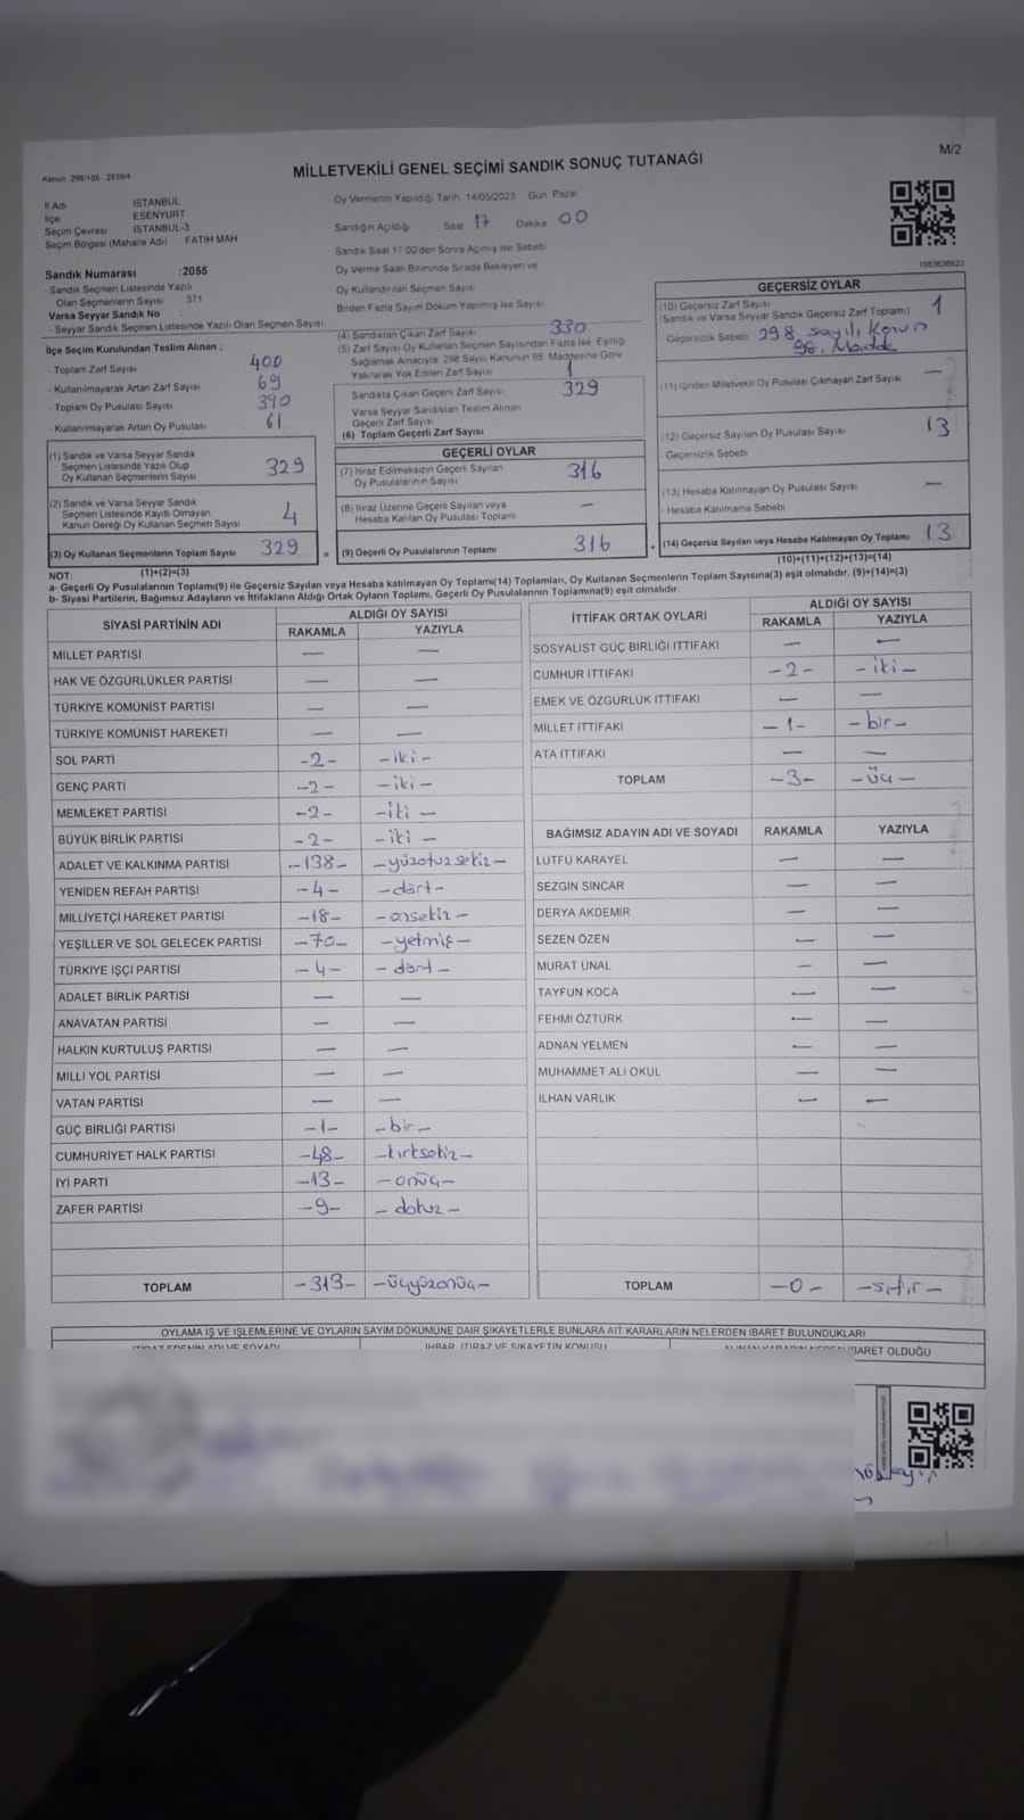 M/2
Kanun 298/105 - 2839/4
MİLLETVEKİLİ GENEL SEÇİMİ SANDIK SONUÇ TUTANAĞI
İl Adı İSTANBUL
İlçe ESENYURT
Seçim Çevresi İSTANBUL-3
Seçim Bölgesi (Mahalle Adı) FATİH MAH
Sandık Numarası :2055
Sandık Seçmen Listesinde Yazılı
Olan Seçmenlerin Sayısı 371
Varsa Seyyar Sandık No
Seyyar Sandık Seçmen Listesinde Yazılı Olan Seçmen Sayısı
İlçe Seçim Kurulundan Teslim Alınan :
Toplam Zarf Sayısı 400
Kullanılmayarak Artan Zarf Sayısı 69
Toplam Oy Pusulası Sayısı 390
Kullanılmayarak Artan Oy Pusulası 61
(1) Sandık ve Varsa Seyyar Sandık
Seçmen Listesinde Yazılı Olup
Oy Kullanan Seçmenlerin Sayısı 329
(2) Sandık ve Varsa Seyyar Sandık
Seçmen Listesinde Kayıtlı Olmayan
Kanun Gereği Oy Kullanan Seçmen Sayısı 4
(3) Oy Kullanan Seçmenlerin Toplam Sayısı 329
(1)+(2)=(3)
Oy Vermenin Yapıldığı Tarih 14/05/2023 Gün Pazar
Sandığın Açıldığı Saat 17 Dakika 00
Sandık Saat 17:00'den Sonra Açılmış İse Sebebi
Oy Verme Saati Bitiminde Sırada Bekleyen ve
Oy Kullandırılan Seçmen Sayısı
Birden Fazla Sayım Döküm Yapılmış İse Sayısı
(4) Sandıktan Çıkan Zarf Sayısı 330
(5) Zarf Sayısı Oy Kullanan Seçmen Sayısından Fazla İse, Eşitliği
Sağlamak Amacıyla 298 Sayılı Kanunun 98. Maddesine Göre
Yakılarak Yok Edilen Zarf Sayısı 1
Sandıkta Çıkan Geçerli Zarf Sayısı 329
Varsa Seyyar Sandıktan Teslim Alınan
Geçerli Zarf Sayısı
(6) Toplam Geçerli Zarf Sayısı
GEÇERLİ OYLAR
(7) İtiraz Edilmeksizin Geçerli Sayılan
Oy Pusulalarının Sayısı 316
(8) İtiraz Üzerine Geçerli Sayılan veya
Hesaba Katılan Oy Pusulası Toplamı —
(9) Geçerli Oy Pusulalarının Toplamı 316
GEÇERSİZ OYLAR
(10) Geçersiz Zarf Sayısı
(Sandık ve Varsa Seyyar Sandık Geçersiz Zarf Toplamı) 1
Geçersizlik Sebebi 298 sayılı Kanun
98. Madde
(11) İçinden Milletvekili Oy Pusulası Çıkmayan Zarf Sayısı —
(12) Geçersiz Sayılan Oy Pusulası Sayısı 13
Geçersizlik Sebebi
(13) Hesaba Katılmayan Oy Pusulası Sayısı —
Hesaba Katılmama Sebebi
(14) Geçersiz Sayılan veya Hesaba Katılmayan Oy Toplamı 13
(10)+(11)+(12)+(13)=(14)
NOT:
a- Geçerli Oy Pusulalarının Toplamı(9) ile Geçersiz Sayılan veya Hesaba katılmayan Oy Toplamı(14) Toplamları, Oy Kullanan Seçmenlerin Toplam Sayısına(3) eşit olmalıdır. (9)+(14)=(3)
b- Siyasi Partilerin, Bağımsız Adayların ve İttifakların Aldığı Ortak Oyların Toplamı, Geçerli Oy Pusulalarının Toplamına(9) eşit olmalıdır.
SİYASİ PARTİNİN ADI ALDIĞI OY SAYISI
RAKAMLA YAZIYLA
MİLLET PARTİSİ — —
HAK VE ÖZGÜRLÜKLER PARTİSİ — —
TÜRKİYE KOMÜNİST PARTİSİ — —
TÜRKİYE KOMÜNİST HAREKETİ — —
SOL PARTİ -2- -iki-
GENÇ PARTİ -2- -iki-
MEMLEKET PARTİSİ -2- -iki-
BÜYÜK BİRLİK PARTİSİ -2- -iki-
ADALET VE KALKINMA PARTİSİ -138- -yüzotuzsekiz-
YENİDEN REFAH PARTİSİ -4- -dört-
MİLLİYETÇİ HAREKET PARTİSİ -18- -onsekiz-
YEŞİLLER VE SOL GELECEK PARTİSİ -70- -yetmiş-
TÜRKİYE İŞÇİ PARTİSİ -4- -dört-
ADALET BİRLİK PARTİSİ — —
ANAVATAN PARTİSİ — —
HALKIN KURTULUŞ PARTİSİ — —
MİLLİ YOL PARTİSİ — —
VATAN PARTİSİ — —
GÜÇ BİRLİĞİ PARTİSİ -1- -bir-
CUMHURİYET HALK PARTİSİ -48- -kırksekiz-
İYİ PARTİ -13- -onüç-
ZAFER PARTİSİ -9- -dokuz-
TOPLAM -313- -üçyüzonüç-
İTTİFAK ORTAK OYLARI ALDIĞI OY SAYISI
RAKAMLA YAZIYLA
SOSYALİST GÜÇ BİRLİĞİ İTTİFAKI — —
CUMHUR İTTİFAKI -2- -iki-
EMEK VE ÖZGÜRLÜK İTTİFAKI — —
MİLLET İTTİFAKI -1- -bir-
ATA İTTİFAKI — —
TOPLAM -3- -üç-
BAĞIMSIZ ADAYIN ADI VE SOYADI RAKAMLA YAZIYLA
LÜTFÜ KARAYEL — —
SEZGİN SİNCAR — —
DERYA AKDEMİR — —
SEZEN ÖZEN — —
MURAT ÜNAL — —
TAYFUN KOCA — —
FEHMİ ÖZTÜRK — —
ADNAN YELMEN — —
MUHAMMET ALİ OKUL — —
İLHAN VARLIK — —
TOPLAM -0- -sıfır-
OYLAMA İŞ VE İŞLEMLERİNE VE OYLARIN SAYIM DÖKÜMÜNE DAİR ŞİKAYETLERLE BUNLARA AİT KARARLARIN NELERDEN İBARET BULUNDUKLARI
İHBAR, İTİRAZ VE ŞİKAYETİN KONUSU
İBARET OLDUĞU